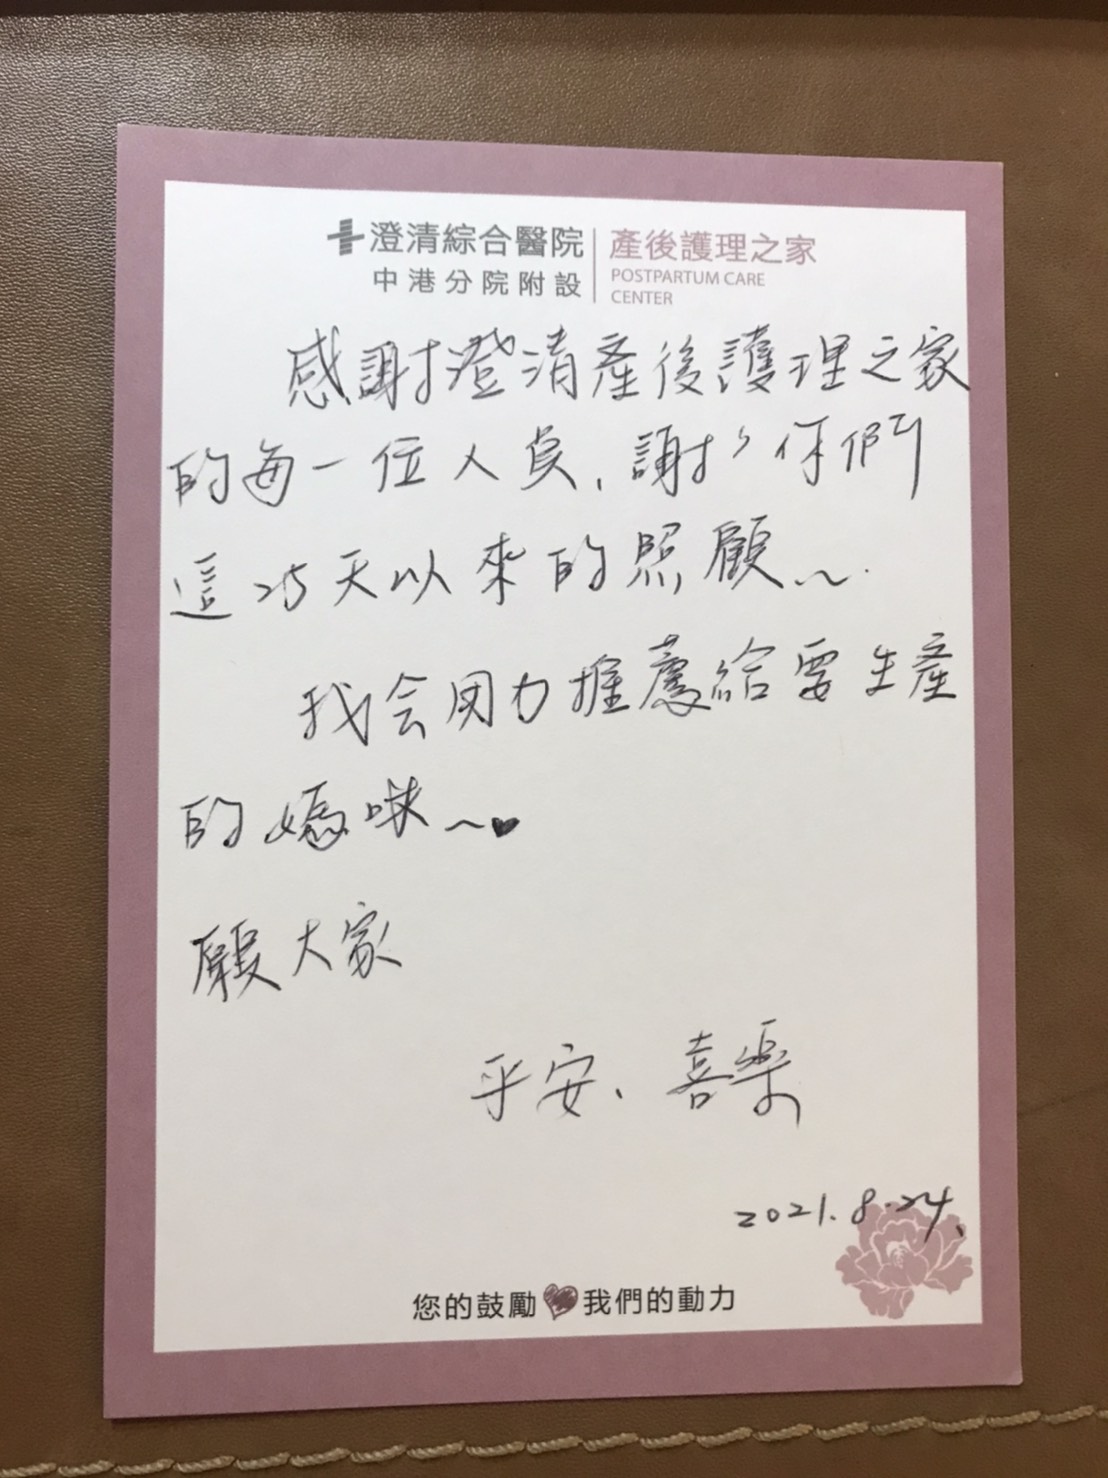 澄清綜合醫院
中港分院附設
產後護理之家
POSTPARTUM CARE
CENTER
感謝澄清產後護理之家
的每一位人員、謝謝你們
這25天以來的照顧~.
我会用力推薦給要生產
的媽咪~♥
願大家
平安、喜樂
2021.8.24.
您的鼓勵♥我們的動力